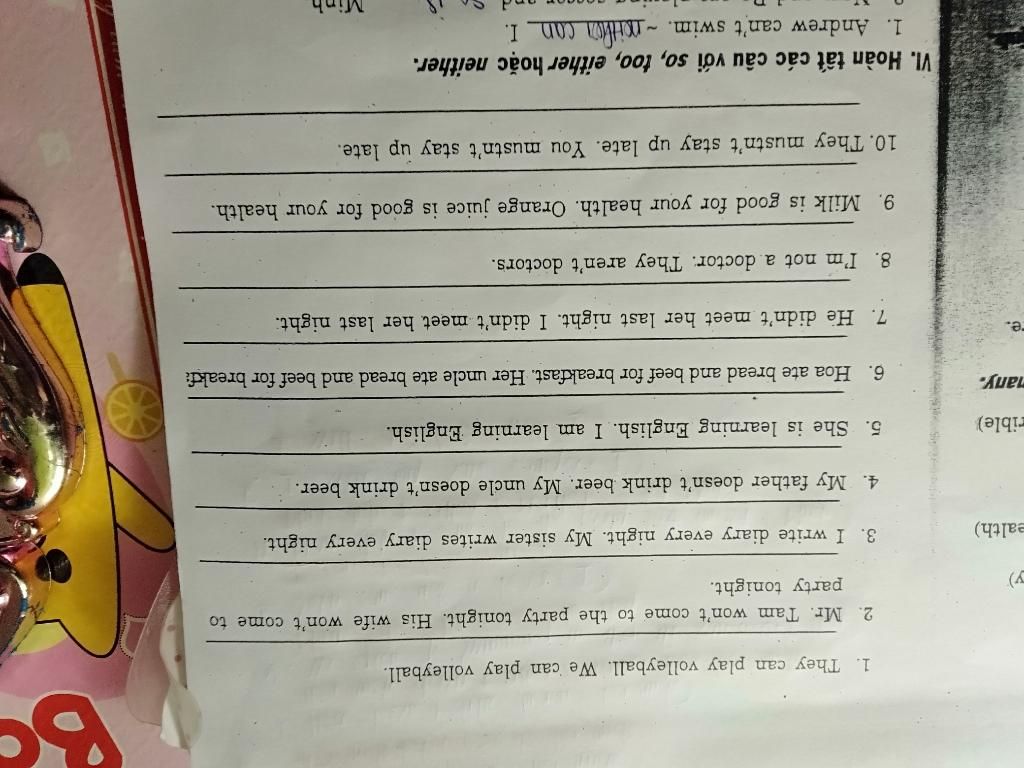 1. They can play volleyball. We can play volleyball.
2. Mr. Tam won't come to the party tonight. His wife won't come to
party tonight.
3. I write diary every night. My sister writes diary every night.
4. My father doesn't drink beer. My uncle doesn't drink beer.
5. She is learning English. I am learning English.
6. Hoa ate bread and beef for breakfast. Her uncle ate bread and beef for breakf
7. He didn't meet her last night. I didn't meet her last night.
8. I'm not a doctor. They aren't doctors.
9. Milk is good for your health. Orange juice is good for your health.
10. They mustn't stay up late. You mustn't stay up late.
VI. Hoàn tất các câu với so, too, either hoặc neither.
1. Andrew can't swim. ~ neither can I.
Minh
y)
ealth)
rible)
many.
re.
Bo